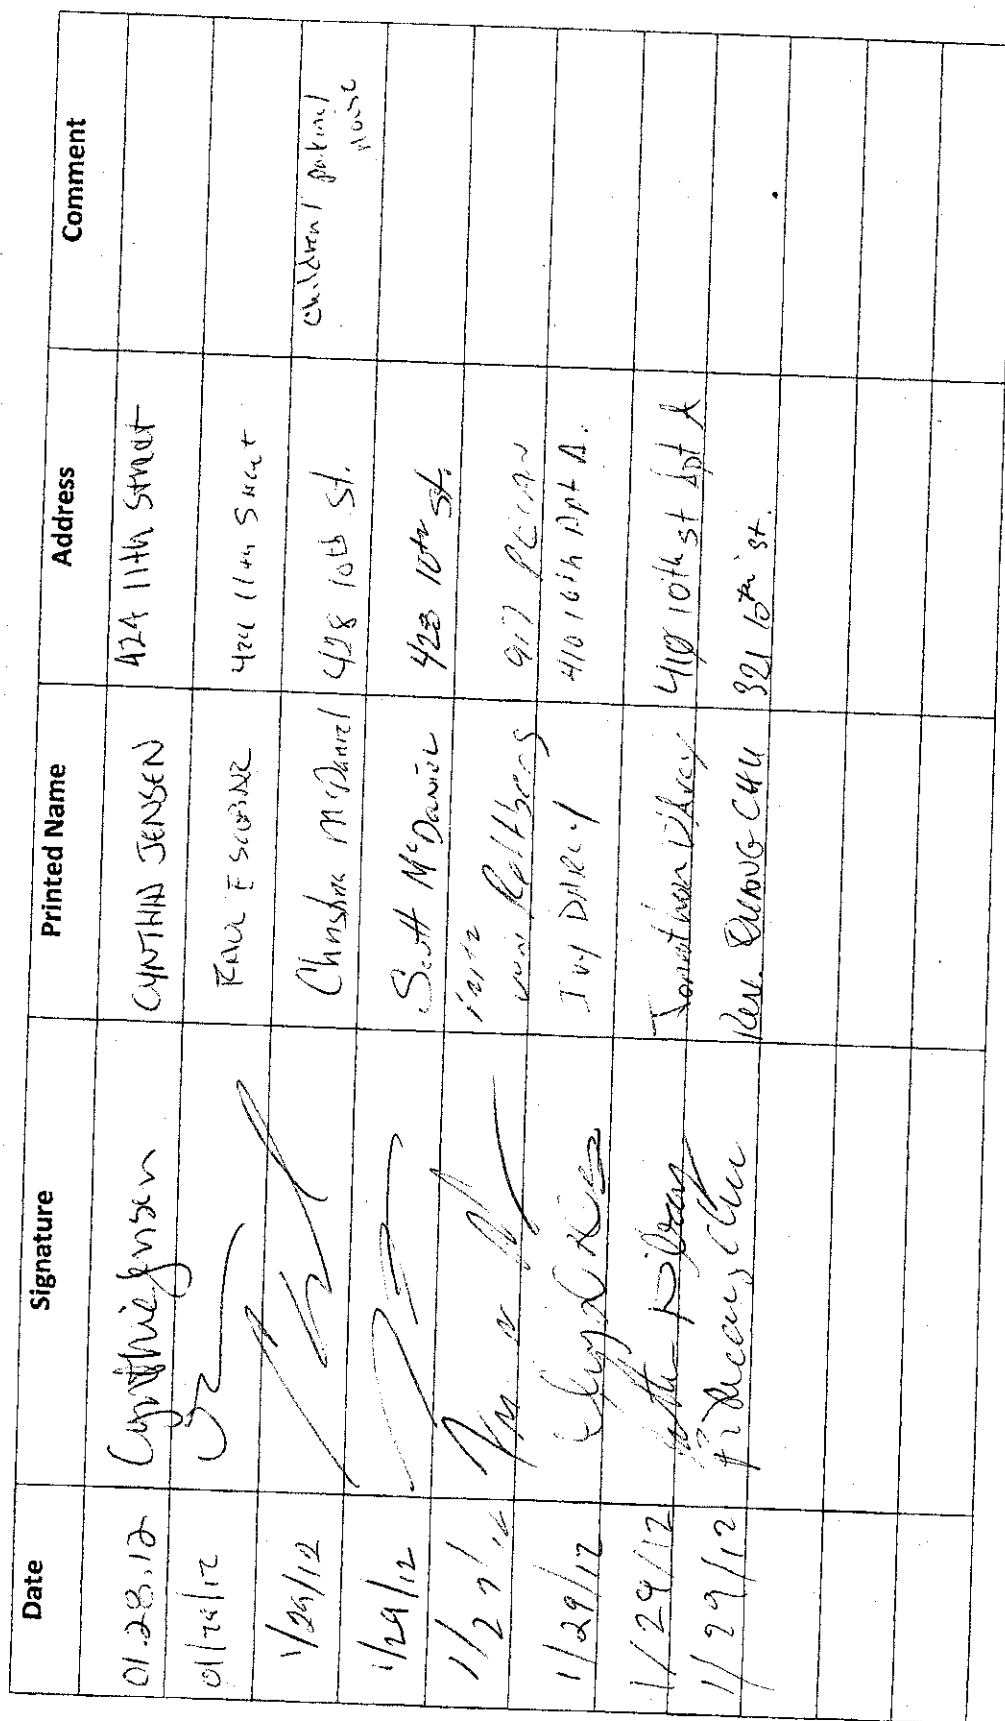 Date Signature Printed Name Address Comment
01.28.12 Cynthia Jensen CYNTHIA JENSEN 424 11th Street
01/28/12 424 11th Street
1/29/12 Christina McDaniel 428 10th St. Children/ parking/
noise
1/29/12 Scott McDaniel 428 10th St.
917 PECAN
1/29/12 Ivy DARCY 410 10th Apt A.
1/29/12 Jonathan D'Arcy 410 10th St Apt A
1/29/12 Rev. QUANG CHU 321 10th St.